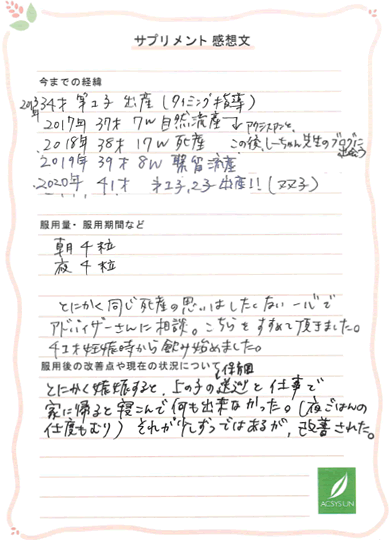 サプリメント 感想文
今までの経緯
2013年 34才 第1子 出産 (タイミング指導)
2017年 37才 7W 自然流産 ↓ アクシスアンと、
2018年 38才 17W 死産 この後、しーちゃん先生のブログに出会う
2019年 39才 8W 稽留流産
2020年 41才 第1子,2子 出産!! (双子)
服用量・服用期間など
朝 4粒
夜 4粒
とにかく同じ死産の思いはしたくない一心で
アドバイザーさんに相談。こちらをすすめて頂きました。
41才妊娠時から飲み始めました。
服用後の改善点や現在の状況について
とにかく妊娠すると、上の子の送迎と仕事で
家に帰ると寝こんで何も出来なかった。(夜ごはんの
仕度もむり) それが少しずつではあるが、改善された。
ACSYSUN